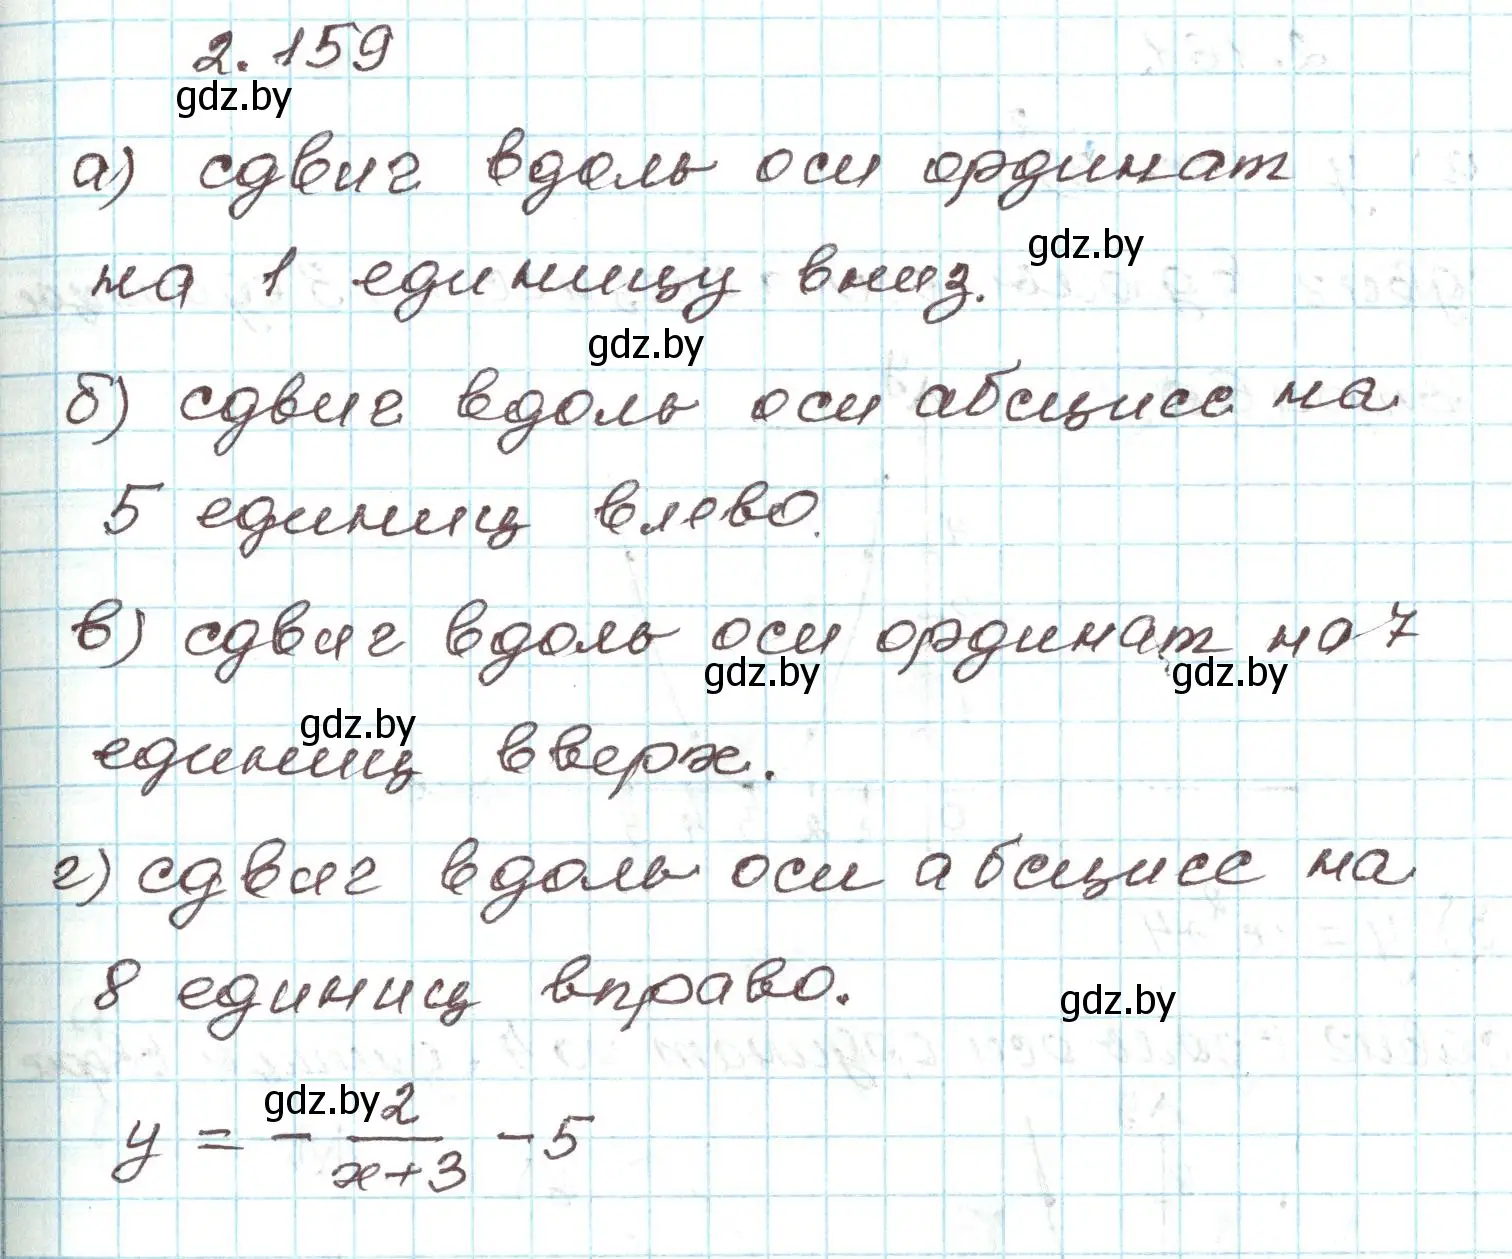 2.159
gdz.by
а) сдвиг вдоль оси ординат
на 1 единицу вниз.
gdz.by
gdz.by
б) сдвиг вдоль оси абсцисс на
5 единиц влево.
в) сдвиг вдоль оси ординат на 7
gdz.by gdz.by
gdz.by
единиц вверх.
г) сдвиг вдоль оси абсцисс на
8 единиц вправо.
gdz.by
gdz.by
y = - 2/(x+3) - 5